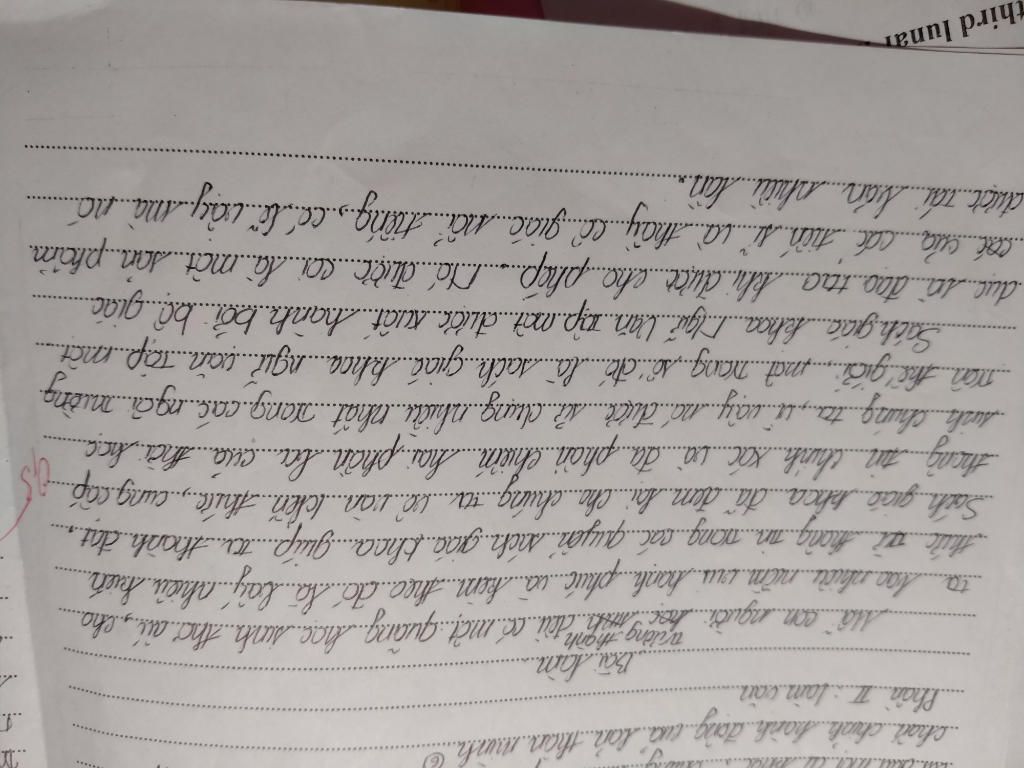 chấn chỉnh hành động của bản thân mình
Phần II: Làm văn
Bài làm
trưởng thành
Mỗi con người đều có một quãng học sinh thơ ấu, cho
ta bao nhiêu niềm vui hạnh phúc và kèm theo đó là bấy nhiêu kiến
thức thông tin trong các quyển sách giáo khoa giúp ta thành đạt.
Sách giáo khoa đã đem lại cho chúng ta vô vàn kiến thức, cung cấp
thông tin chính xác và đã phần chiếm hai phần ba của thời học
sinh chúng ta, vì vậy nó được sử dụng nhiều nhất trong các ngôi trường
trên thế giới, một trong số đó là sách giáo khoa ngữ văn tập một
Sách giáo khoa Ngữ Văn tập một được xuất hành bởi bộ giáo
dục và đào tạo khi được cho phép. Nó được coi là một sản phẩm
của các tiến sĩ và thầy cô giáo nổi tiếng, có lẽ vậy mà nó
được tái bản nhiều lần.
third lunar